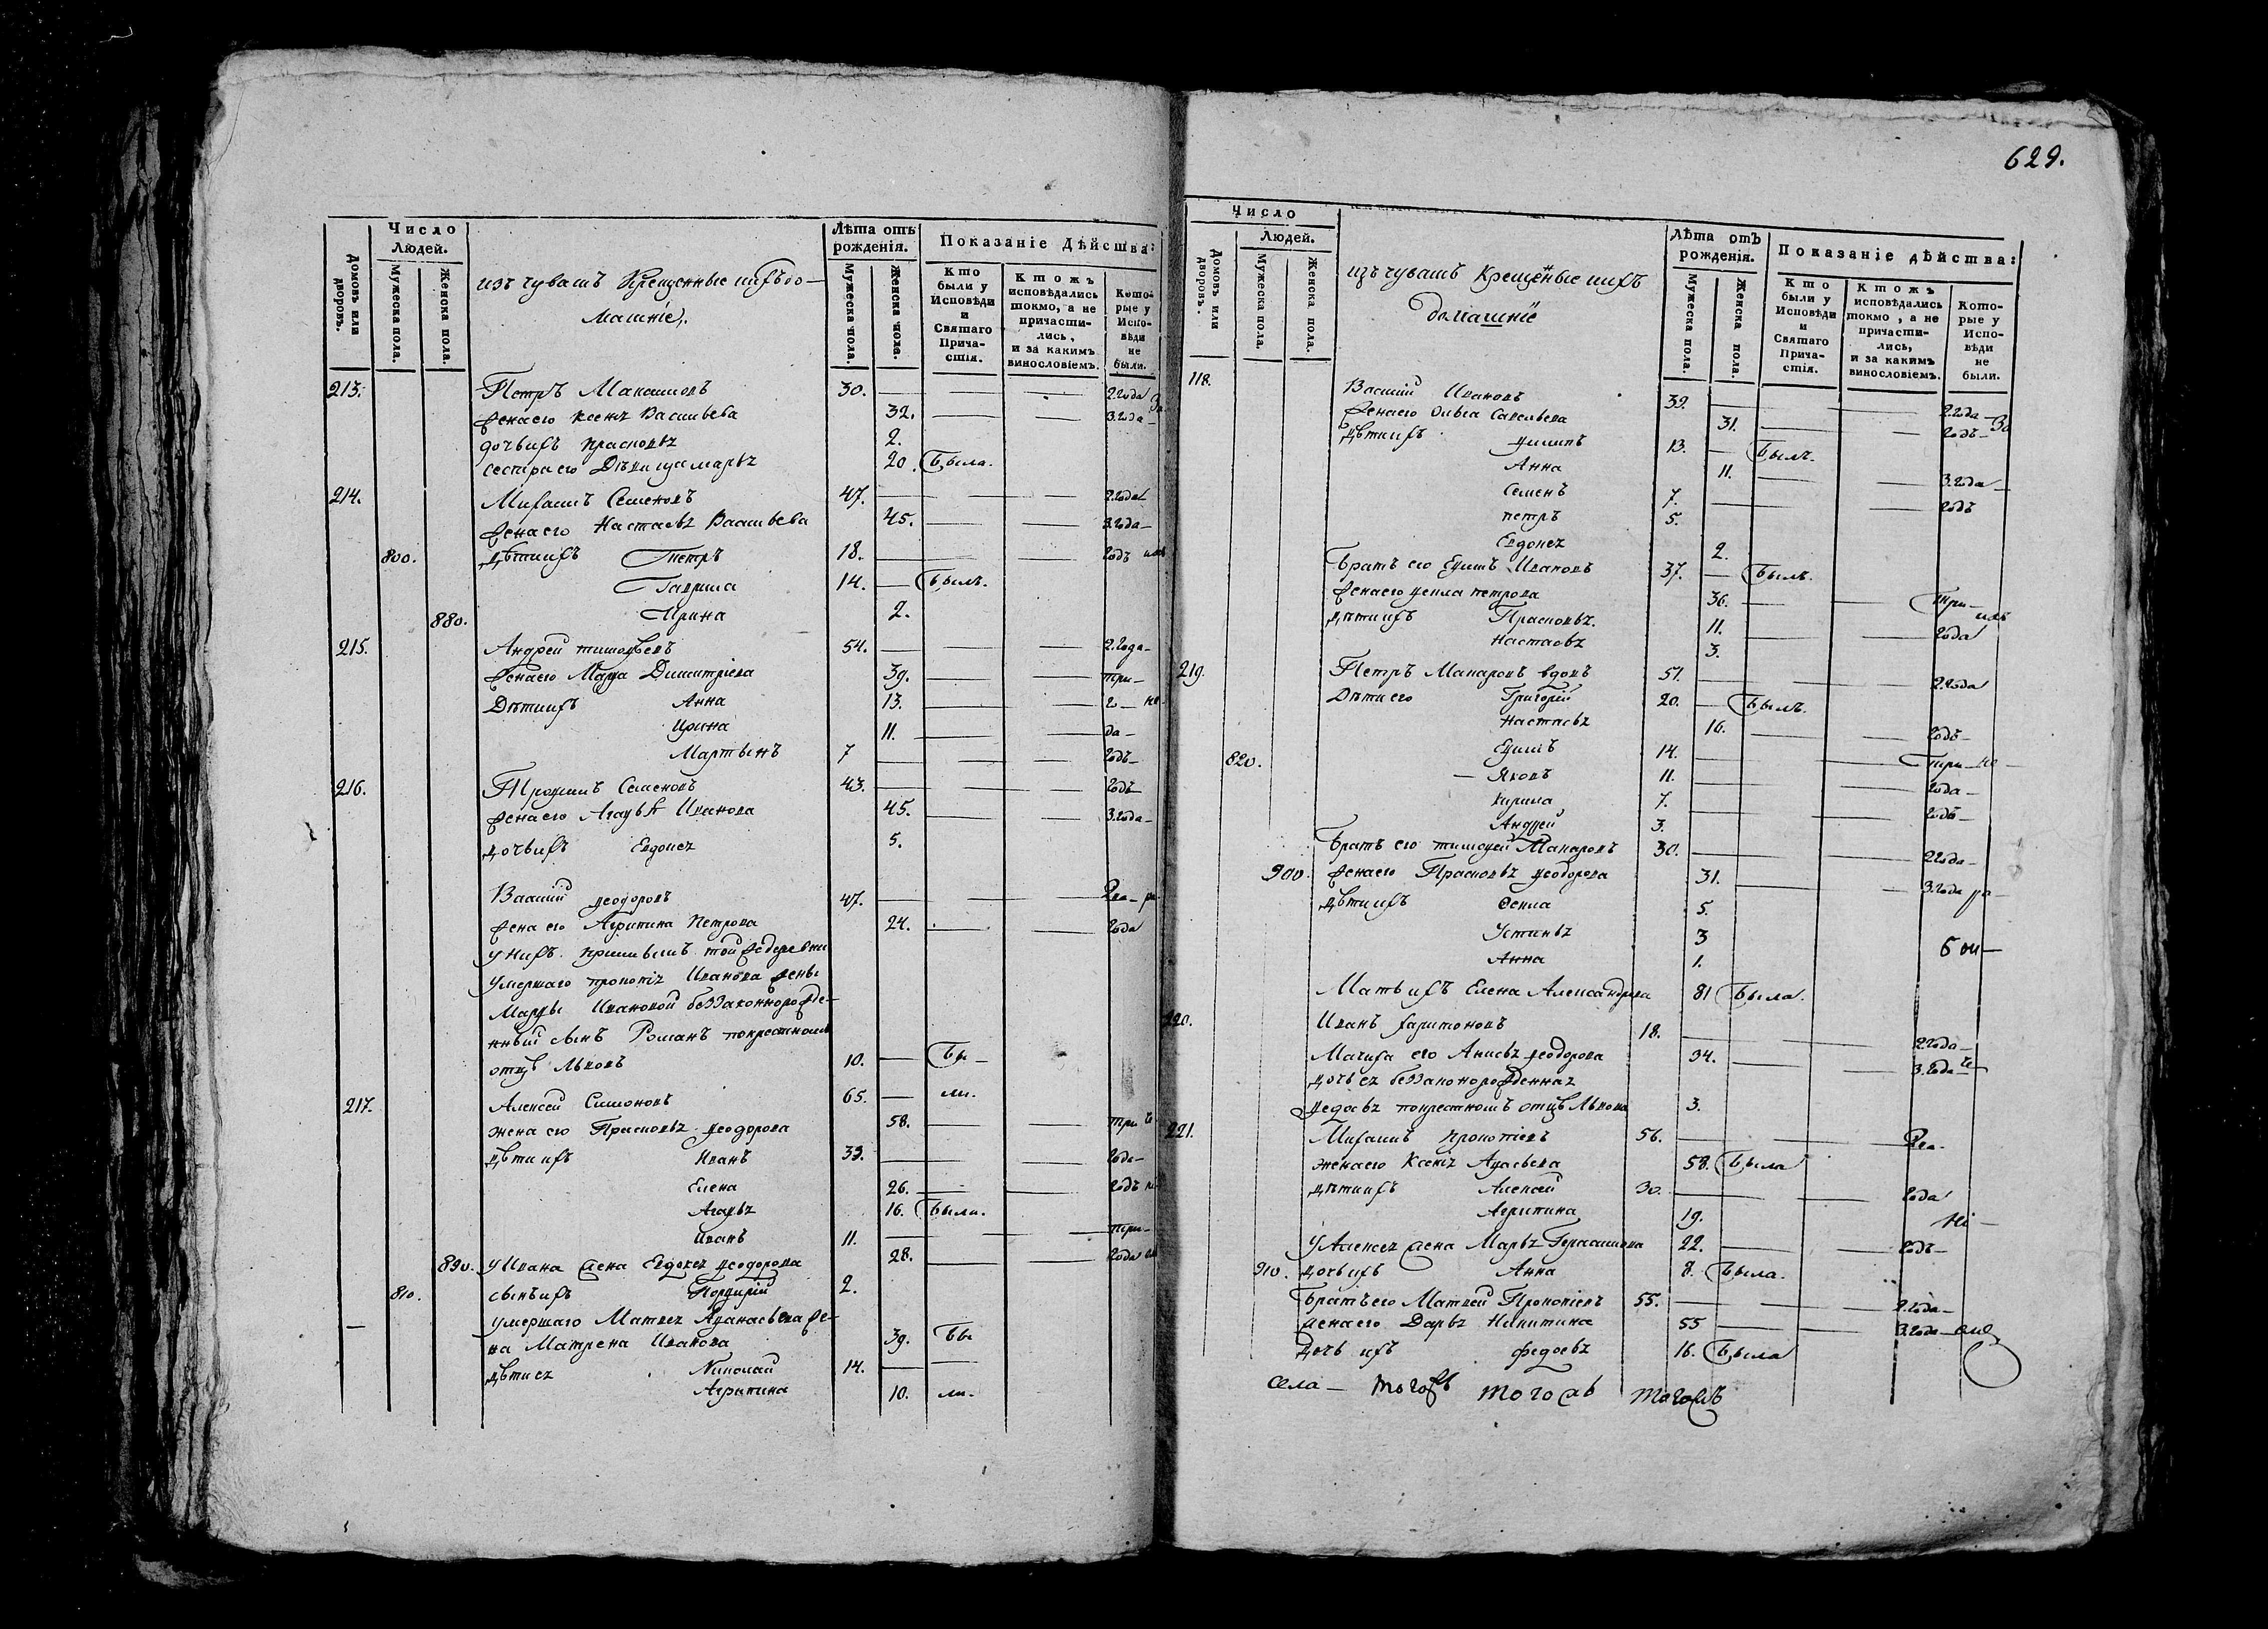 Число Людей.
Домовъ или дворовъ.
Мужеска пола.
Женска пола.
изъ чувашъ Крещенные ихъ до-
машніе,
Лѣта отъ рожденія.
Мужеска пола.
Женска пола.
Показаніе Дѣйства:
Кто были у Исповѣди и Святаго Прича- стія.
Ктожъ исповѣдались токмо, а не причасти- лись, и за какимъ винословіемъ.
Кото- рые у Испо- вѣди не были.
213. Петръ Максимовъ 30. 2. года
жена его Ксенія Васильева 32. 3. года
дочь ихъ Прасковья 2.
сестра его Дѣвица Марья 20. Была.
214. Михаилъ Семеновъ 47. 2. года
жена его Настасья Васильева 45. 3. года
800. Дѣти ихъ Петръ 18. годъ
Гаврила 14. Былъ.
880. Ирина 2.
215. Андрей Тимофѣевъ 54. 2. года
жена его Марфа Димитріева 39. три
Дѣти ихъ Анна 13. го
Ирина 11. да
Мартынъ 7 годъ
216. Трофимъ Семеновъ 43. годъ
жена его Агафья Иванова 45. 3. года
дочь ихъ Евдокея 5.
Василій Феодоровъ 47. два
жена его Агрипина Петрова 24. года
у нихъ тойже деревни
умершаго Прокопія Иванова жены
Марфы Ивановой беззаконнорожде-
нный сынъ Романъ по крестномъ
отцѣ Львовъ 10. Бы
217. Алексей Симоновъ 65. ли.
жена его Прасковья Феодорова 58. три
Дѣти ихъ Иванъ 33. года
Елена 26. годъ
Агафья 16. Были.
Иванъ 11. три
890. у Ивана жена Евдокея Феодорова 28. года
810. сынъ ихъ Порфирій 2.
умершаго Матвея Афанасьева же-
на Матрена Иванова 39. Бы
Дѣти ея Николай 14.
Агрипина 10. ли.
629.
Число Людей.
Домовъ или дворовъ.
Мужеска пола.
Женска пола.
изъ чувашъ Крещеные ихъ
домашніе
Лѣта отъ рожденія.
Мужеска пола.
Женска пола.
Показаніе дѣйства:
Кто были у Исповѣди и Святаго Прича- стія.
Ктожъ исповѣдались токмо, а не причасти- лись, и за какимъ винословіемъ.
Кото- рые у Испо- вѣди не были.
118. Василій Ивановъ 39. 2. года За
жена его Ольга Савельева 31. годъ
Дѣти ихъ Филипъ 13. Былъ.
Анна 11. 3. года
Семенъ 7. годъ
Петръ 5.
Евдокея 2.
Братъ его Ефимъ Ивановъ 37. Былъ.
жена его Фекла Петрова 36. три
Дѣти ихъ Прасковья. 11. года
Настасья 3.
219. Петръ Макаровъ вдовъ 51. 2. года
Дѣти его Григорій 20. Былъ.
Настасья 16. годъ
820. Ефимъ 14. три
Яковъ 11. года
Кирила 7. годъ
Андрей 3.
Братъ его Тимофей Макаровъ 30. 2. года
900. жена его Прасковья Феодорова 31. 3. года
Дѣти ихъ Фекла 5.
Устинья 3
Анна 1.
Мать ихъ Елена Александрова 81 Была.
220. Иванъ Харитоновъ 18. 2. года
Мачиха его Анисья Феодорова 34. 3. года
Дочь ея беззаконорожденная
Федосья по крестномъ отцѣ Львова 3.
221. Михаилъ Прокопіевъ 56. Два
жена его Ксенія 58. Была
Дѣти ихъ Алексей 30. года
Агрипина 19.
У Алексея жена Марья Герасимова 22. годъ
910. Дочь ихъ Анна 8. Была.
Братъ его Матвей Прокопіевъ 55. 2. года
жена его Дарья Никитина 55 3. года
Дочь ихъ Федосья 16. Была
Села тогожъ тогожъ тогожъ